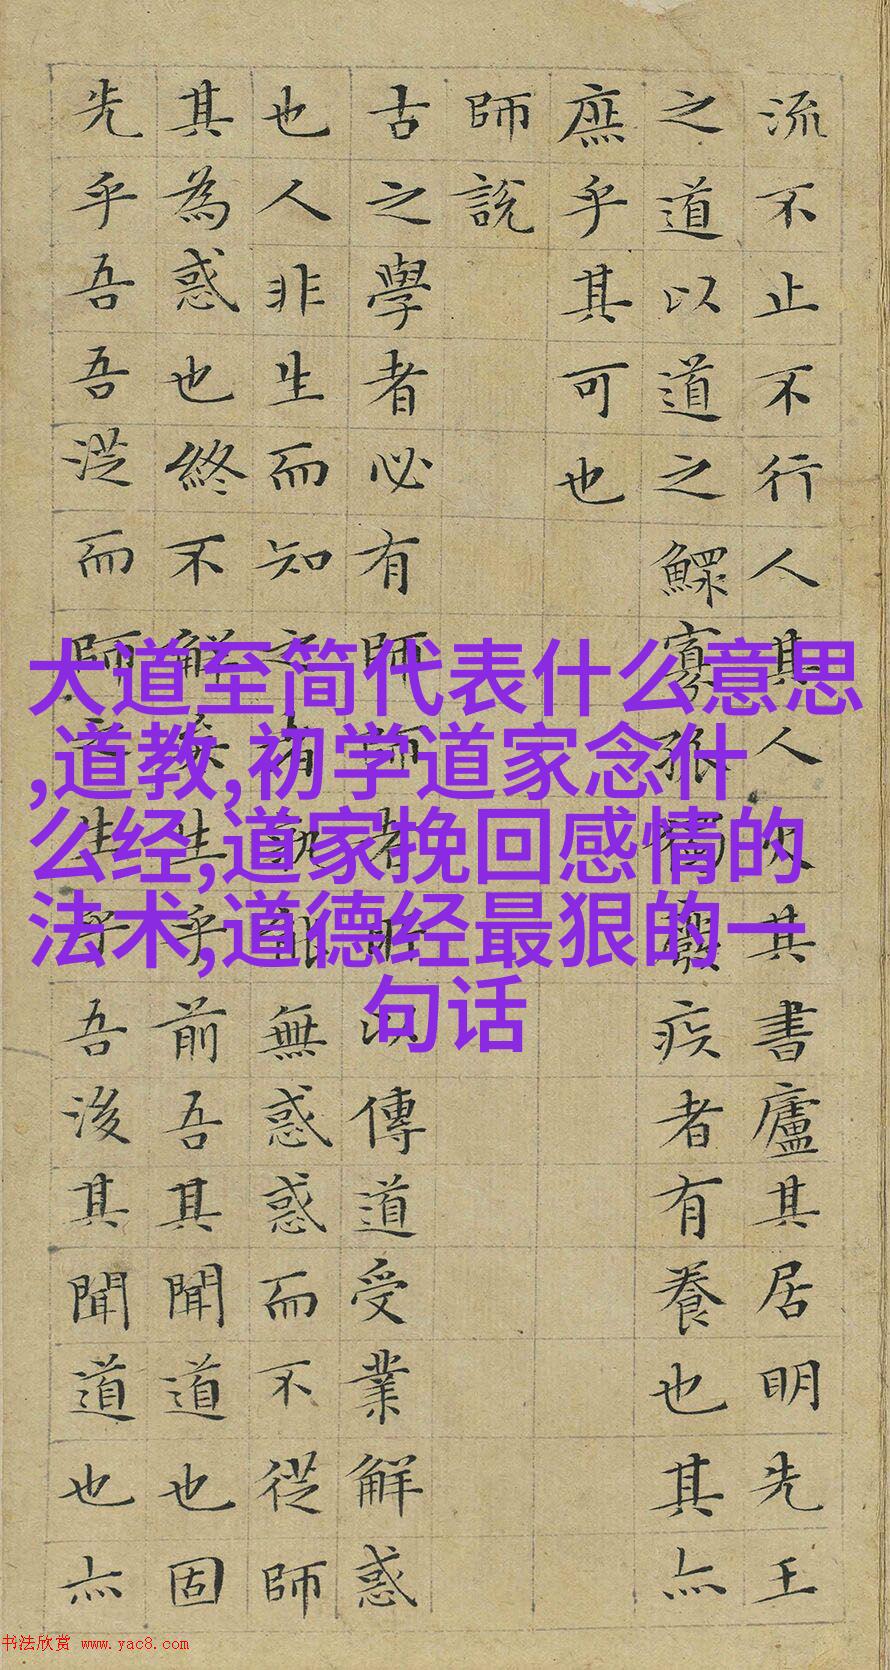 流不止不行人其人火其書廬其居明先王
之道以道之鰥寡孤獨廢疾者有養也其亦
庶乎其可也
師說
古之學者必有師師者所以傳道受業解惑
也人非生而知之者孰能無惑惑而不從師
其為惑也終不解矣生乎前吾其聞道也固
先乎吾吾從而師之生乎吾後其聞道也亦
大道至简代表什么意思
,道教,初学道家念什
么经,道家挽回感情的
法术,道德经最狠的一
句话
书法欣赏 www.yac8.com